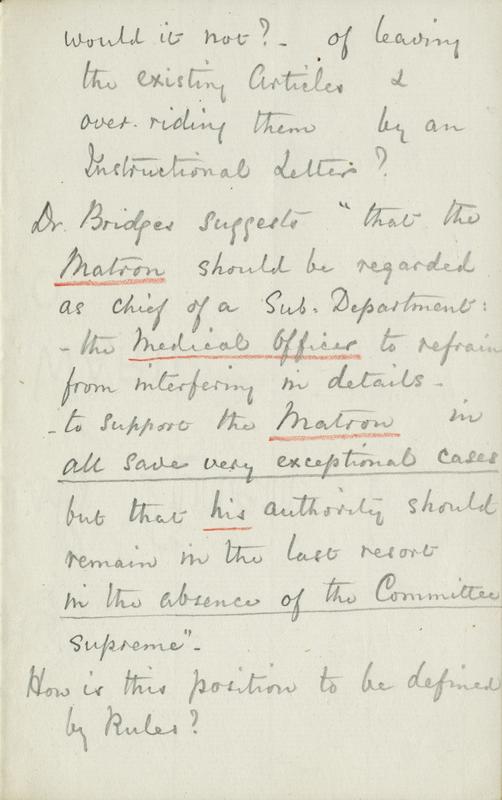 would it not? - of leaving
the existing Articles &
over-riding them by an
Instructional Letter?
Dr. Bridges suggests "that the
Matron should be regarded
as chief of a Sub-Department:
- the Medical Officer to refrain
from interfering in details -
- to support the Matron in
all save very exceptional cases
but that his authority should
remain in the last resort
in the absence of the Committee
supreme" -
How is this position to be defined
by Rules?